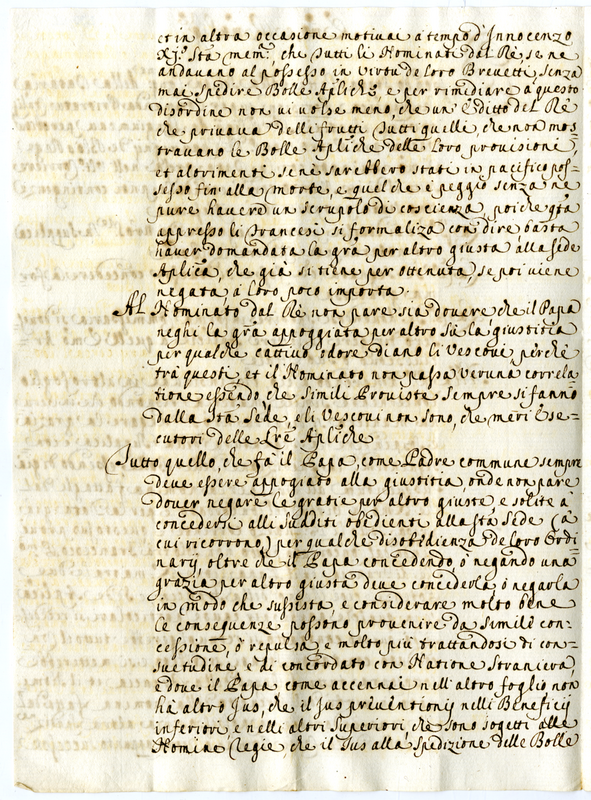 et in altra occasione motivai a tempo d'Innocenzo
XJ.º Stã mem.ª, che tutti li Nominati dal Rè se ne
andavano al possesso in virtù de loro Brevetti, senza
mai spedire Bolle Apliche, e per rimidiare a questo
disordine non vi volse meno, che un Editto del Rè
che privava delli frutti tutti quelli, che non mos=
travano le Bolle Apliche delle loro provisioni,
et altrimenti se ne sarebbero stati in pacifico pos=
sesso fin' alla morte, e quel che è peggio senza ne
pure havere un scrupolo di coscienza, poiche
appresso li Francesi si formaliza con dire basta
haver domandata la grã per altro giusta alla Sede
Aplica, che già si tiene per ottenuta, se poi viene
negata, a loro poco importa.
Al Nominato dal Rè non pare sia dovere che il Papa
neghi la grã appoggiata per altro sù la giustitia
per qualche cattivo odore diano li Vescovi, perche
trà questi, et il Nominato non passa veruna correla
tione essendo che simili Proviste sempre si fanno
dalla Stã Sede, e li Vescovi non sono, che meri Ese=
cutori delle Lrẽ Apliche
Tutto quello, che fà il Papa, come Padre commune sempre
deve essere appogiato alla giustitia, onde non pare
dover negare le gratie per altro giuste, e solite à
concedersi alli sudditi obedienti alla Stã Sede (a
cui ricorrono) per qualche disobedienza de loro Ordi=
narij, oltre che il Papa concedendo, ò negando una
grazia per altro giusta deve concederla, ò negarla
in modo che sussista, e considerare molto bene
le conseguenze possono provenire da simile con=
cessione, ò repulsa, e molto più trattandosi di con=
suetudine, e di concordato con Natione straniera,
e dove il Papa come accennai nell'altro foglio non
hà altro Jus, che il Jus prèventionis nelli Beneficij
inferiori, e nelli altri superiori, che sono sogetti alle
Nomine Regie, che il Jus alla spedizione delle Bolle